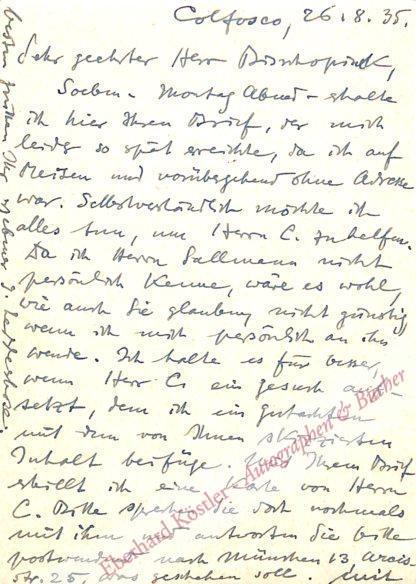 Colfosco, 26.8.35.
Sehr geehrter Herr
Soeben - Montag Abend - erhalte
ich hier Ihren Brief, der mich
leider so spät erreichte, da ich auf
Reisen und vorübergehend ohne Adresse
war. Selbstverständlich möchte ich
alles tun, um Herrn C. zu helfen.
Da ich Herrn Sallmann nicht
persönlich kenne, wäre es wohl,
wie auch Sie glauben, nicht günstig
wenn ich mich persönlich an ihn
wende. Ich halte es für besser,
wenn Herr C. ein Gesuch auf-
setzt, dem ich ein Gutachten
mit dem von Ihnen skizzierten
Inhalt beifüge. Ihrem Brief
erhielt ich eine Karte von Herrn
C. Bitte sprechen Sie doch nochmals
mit ihm und antworten Sie bitte
postwendend nach München 13 Arcis
str. 25, was geschehen soll. Mit
besten Grüssen Ihr ergebener
Eberhard Köstler - Autographen & Bücher